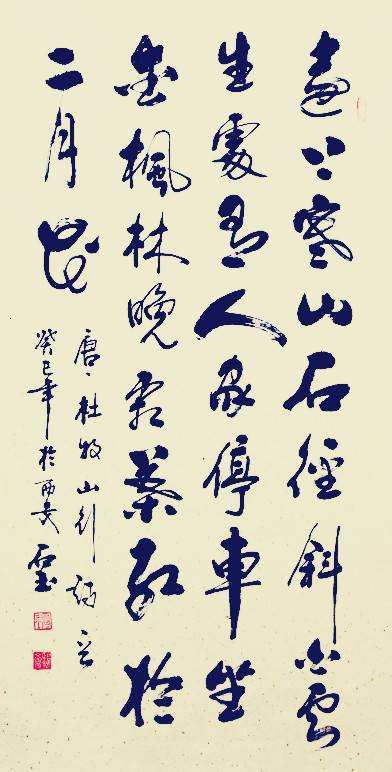 遠上寒山石徑斜白雲
生處有人家停車坐
愛楓林晚霜葉紅於
二月花
唐、杜牧山行
癸巳年於西安